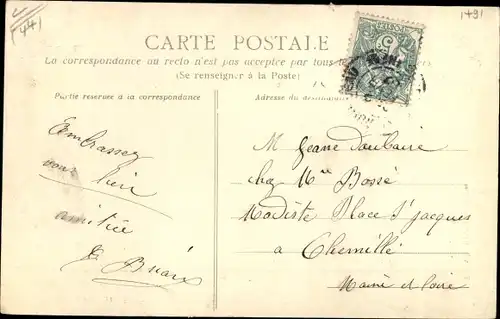 (44)
1491
CARTE POSTALE
La correspondance au recto n'est pas acceptée par tous
(Se renseigner à la Poste)
Partie réservée à la correspondance
Adresse du destinataire
Embrassez
vous bien
amitiée
M Jeanne
chez Mlle Bossé
Modiste Place St Jacques
a Chemillé
Maine et Loire